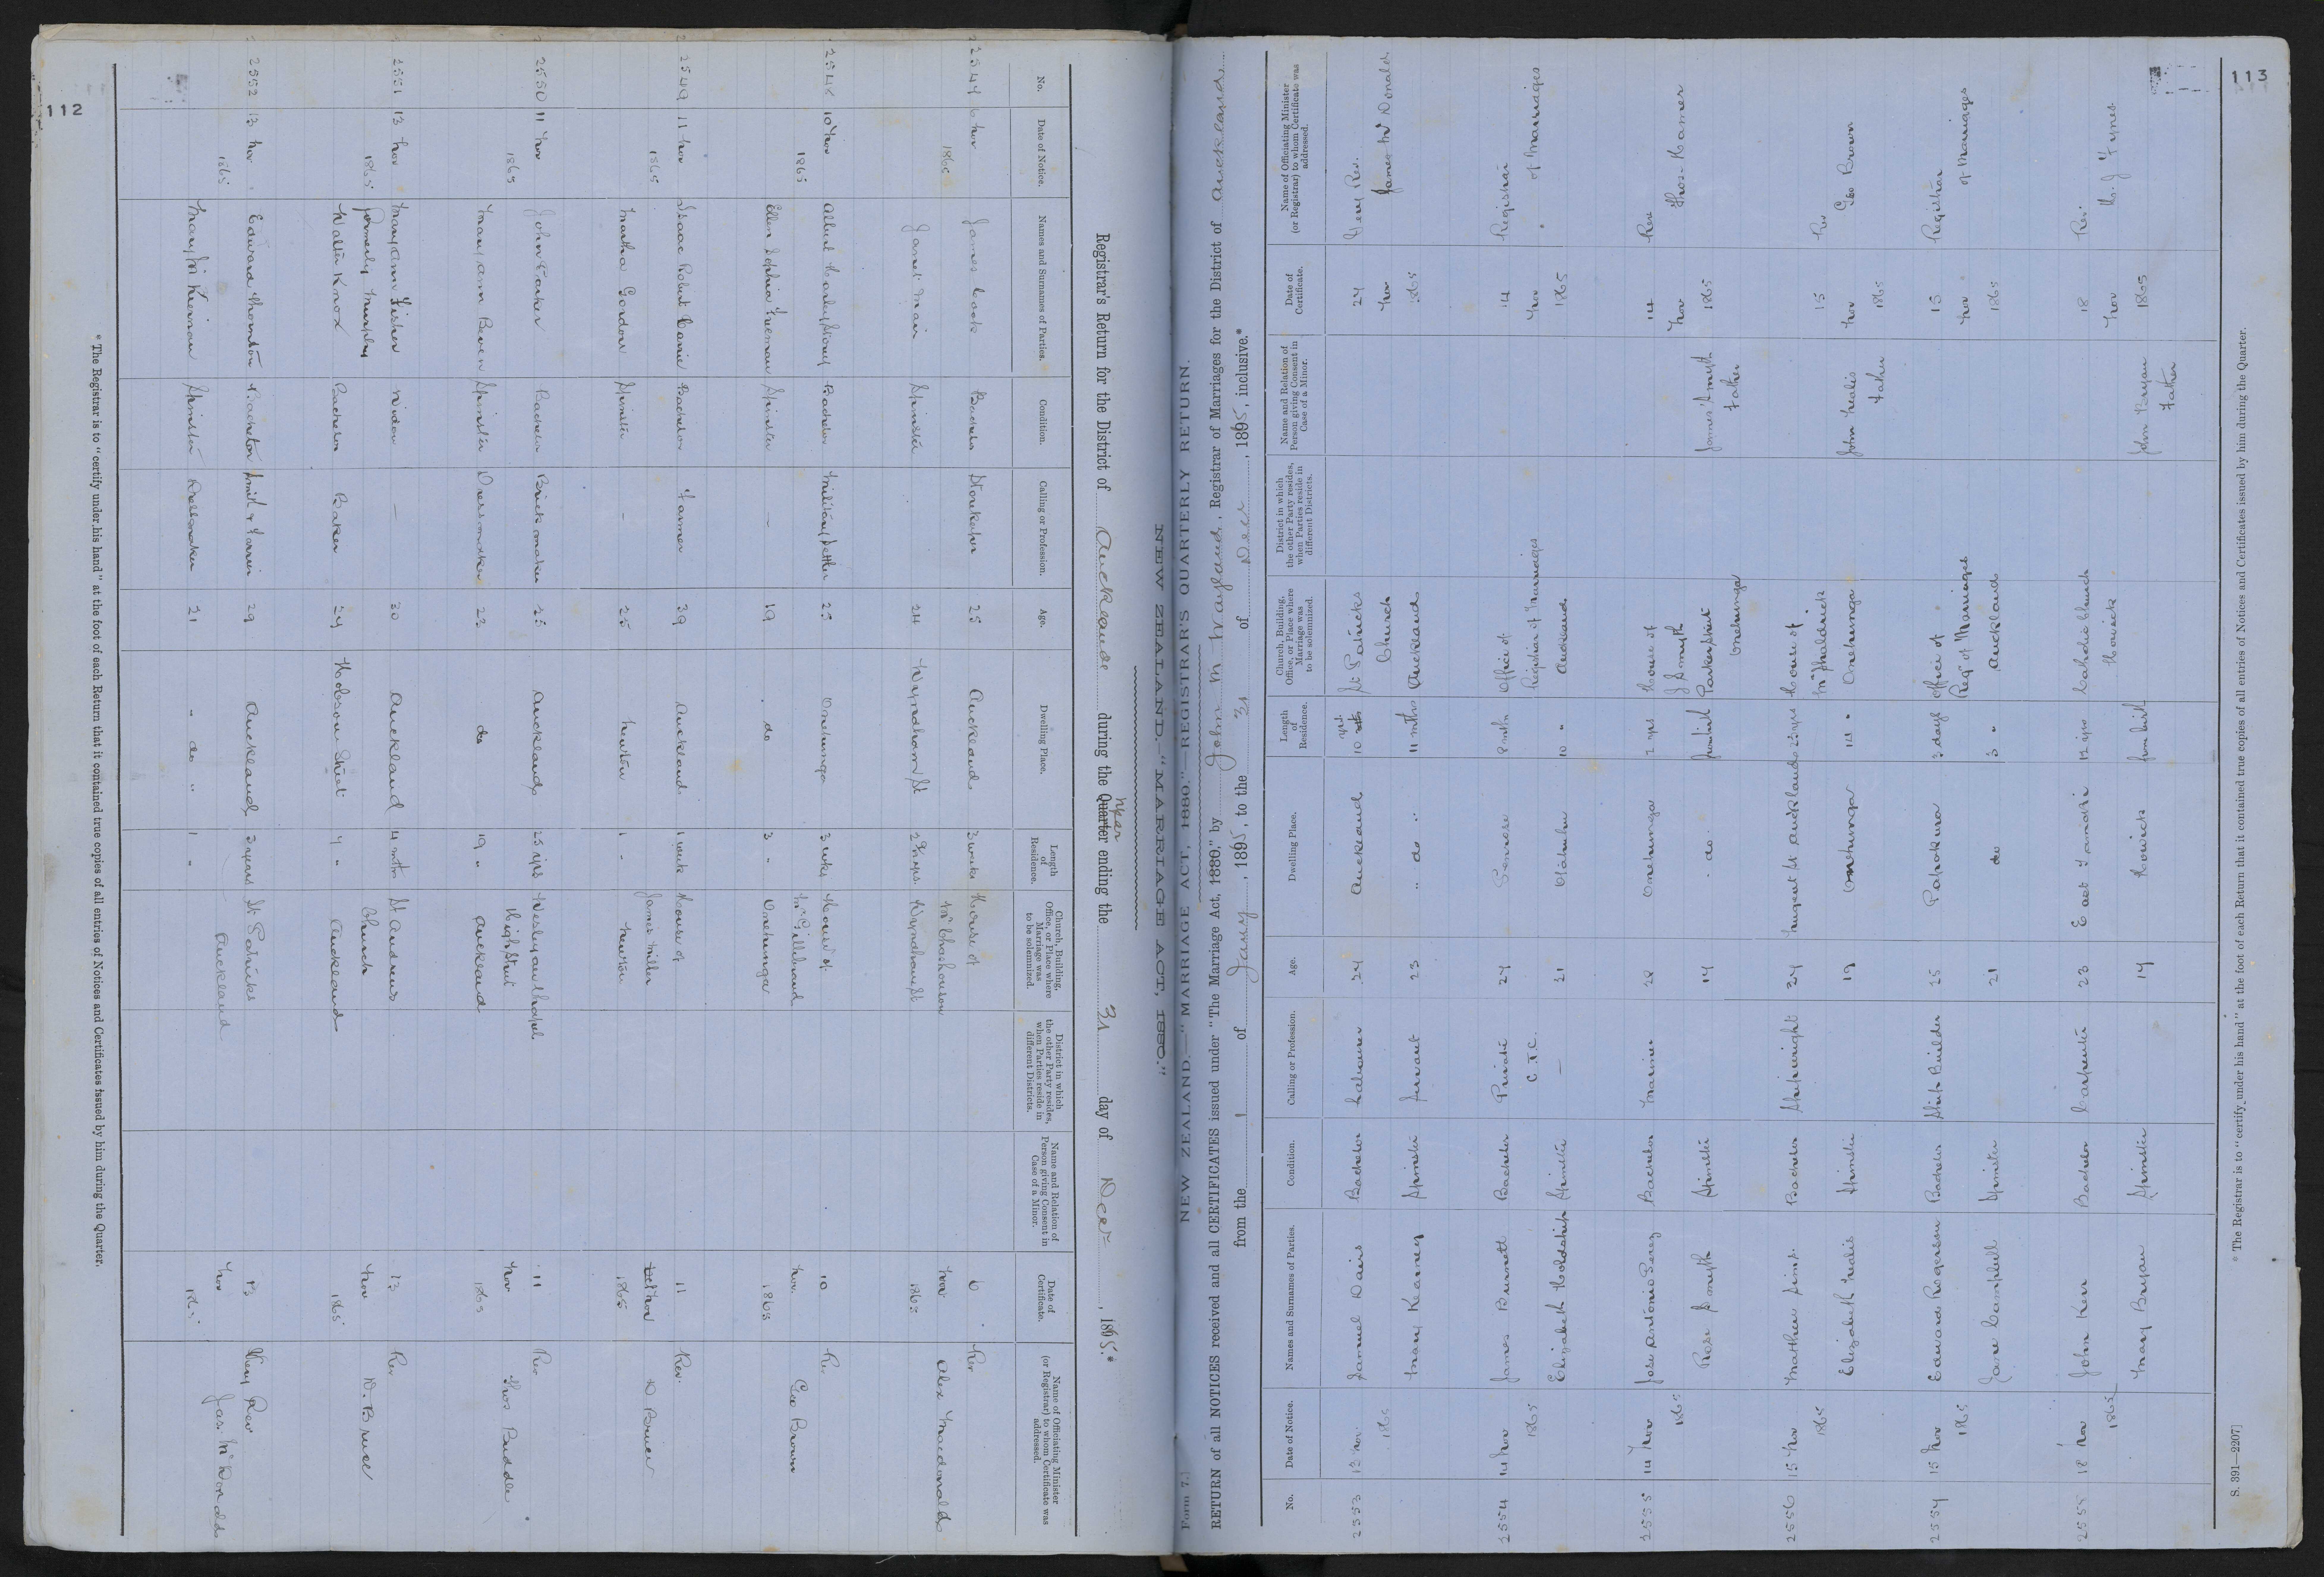 112
NEW ZEALAND.—"MARRIAGE ACT, 1880."
Registrar's Return for the District of Auckland during the Quarter year ending the 31 day of Decr, 1865.*
No.
Date of Notice.
Names and Surnames of Parties.
Condition.
Calling or Profession.
Age.
Dwelling Place.
Length of Residence.
Church, Building, Office, or Place where Marriage was to be solemnized.
District in which the other Party resides, when Parties reside in different Districts.
Name and Relation of Person giving Consent in Case of a Minor.
Date of Certificate.
Name of Officiating Minister (or Registrar) to whom Certificate was addressed.
2547 6 Nov James Cook Bachelor Storekeeper 25 Auckland 3 weeks House of 6 Rev
1865 Janet Mair Spinster 24 Wyndham St 2½ yrs. Wyndham St Nov 1865 Alex Macdonald
2548 10 Nov Albert Bachelor Military Settler 25 Onehunga 3 wks House of 10 Rev
1865 Ellen Sophia Freeman Spinster — 19 do 3 " Mr Gilliland Onehunga Nov. 1865 Geo Brown
2549 11 Nov Isaac Robert Bachelor Farmer 39 Auckland 1 week House of 11 Rev.
1865 Martha Gordon Spinster - 25 Newton 1 - James Miller Newton Oct Nov 1865 D Bruce
2550 11 Nov John Bachelor Brickmaker 25 Auckland 25 yrs Wesleyan Chapel 11 Rev
1865 Mary Ann Beven Spinster Dressmaker 22 do 19 " High Street Auckland Nov 1865 Thos Buddle
2551 13 Nov Mary Ann Fisher Widow — 30 Auckland 4 mths St Andrews 13 Rev
formerly Murphy
1865 Walter Knox Bachelor Baker 27 Hobson Street 7 " Church Auckland Nov 1865 D. Bruce
2552 13 Nov. Edward Thornton Bachelor 29 Auckland 3 years St Patricks 13 Very Rev
1865 Mary McKiernan Spinster Dressmaker 21 - do " 1 " Auckland Nov 1865 Jas. McDonald
* The Registrar is to "certify under his hand" at the foot of each Return that it contained true copies of all entries of Notices and Certificates issued by him during the Quarter.
113
Form 7.]
NEW ZEALAND.—"MARRIAGE ACT, 1880."—REGISTRAR'S QUARTERLY RETURN.
RETURN of all NOTICES received and all CERTIFICATES issued under "The Marriage Act, 1880," by John M Wayland, Registrar of Marriages for the District of Auckland,
from the 1 of Jany, 1865, to the 31 of Decr, 1865, inclusive.*
No.
Date of Notice.
Names and Surnames of Parties.
Condition.
Calling or Profession.
Age.
Dwelling Place.
Length of Residence.
Church, Building, Office, or Place where Marriage was to be solemnized.
District in which the other Party resides, when Parties reside in different Districts.
Name and Relation of Person giving Consent in Case of a Minor.
Date of Certificate.
Name of Officiating Minister (or Registrar) to whom Certificate was addressed.
2553 13 Nov. Samuel Davis Bachelor Labourer 27 Auckland 10 yrs St Patricks 24 Very Rev.
1865 Mary Kearney Spinster Servant 23 " do " 11 mths Church Auckland Nov 1865 James McDonald
2554 14 Nov James Burnett Bachelor Private 27 Penrose 8 mths Office of 14 Registrar
1865 Elizabeth Holdship Spinster C.T.C. — 21 Otahuhu 10 " Registrar of Marriages Auckland Nov 1865 of Marriages
2555 14 Nov Jose Antonio Perez Bachelor Mariner 28 Onehunga 2 yrs House of 14 Rev
1865 Rose Smyth Spinster 17 - do. from birth J Smyth Parker Street Onehunga James Smyth Father Nov 1865 Thos. Hamer
2556 15 Nov Matthew Sims. Bachelor Shipwright 27 August St Auckland House of 15 Rev
1865 Elizabeth Spinster 19 Onehunga 14 " Onehunga Father Nov 1865 Geo Brown
2557 15 Nov Edward Rogerson Bachelor Ship Builder 25 Papakura 3 days Office of 15 Registrar
1865 Jane Campbell Spinster 21 do 3 " Regr of Marriages Auckland Nov 1865 of Marriages
2558 18 Nov John Kerr Bachelor Carpenter 23 East Tamaki 12 yrs Catholic Church 18 Rev.
1865 Mary Bryan Spinster 17 Howick from birth Howick John Bryan Father Nov 1865
* The Registrar is to "certify under his hand" at the foot of each Return that it contained true copies of all entries of Notices and Certificates issued by him during the Quarter.
S. 391—2207]